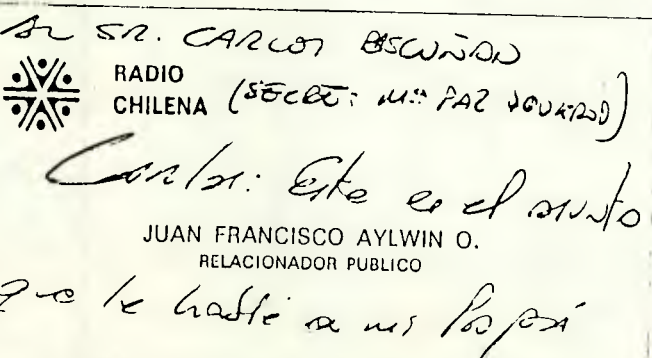 AL SR. CARLOS BASCUÑAN
RADIO
CHILENA (SECRE: Mª PAZ
Carlos: Este es el asunto
JUAN FRANCISCO AYLWIN O.
RELACIONADOR PUBLICO
que le hablé a mi Papá